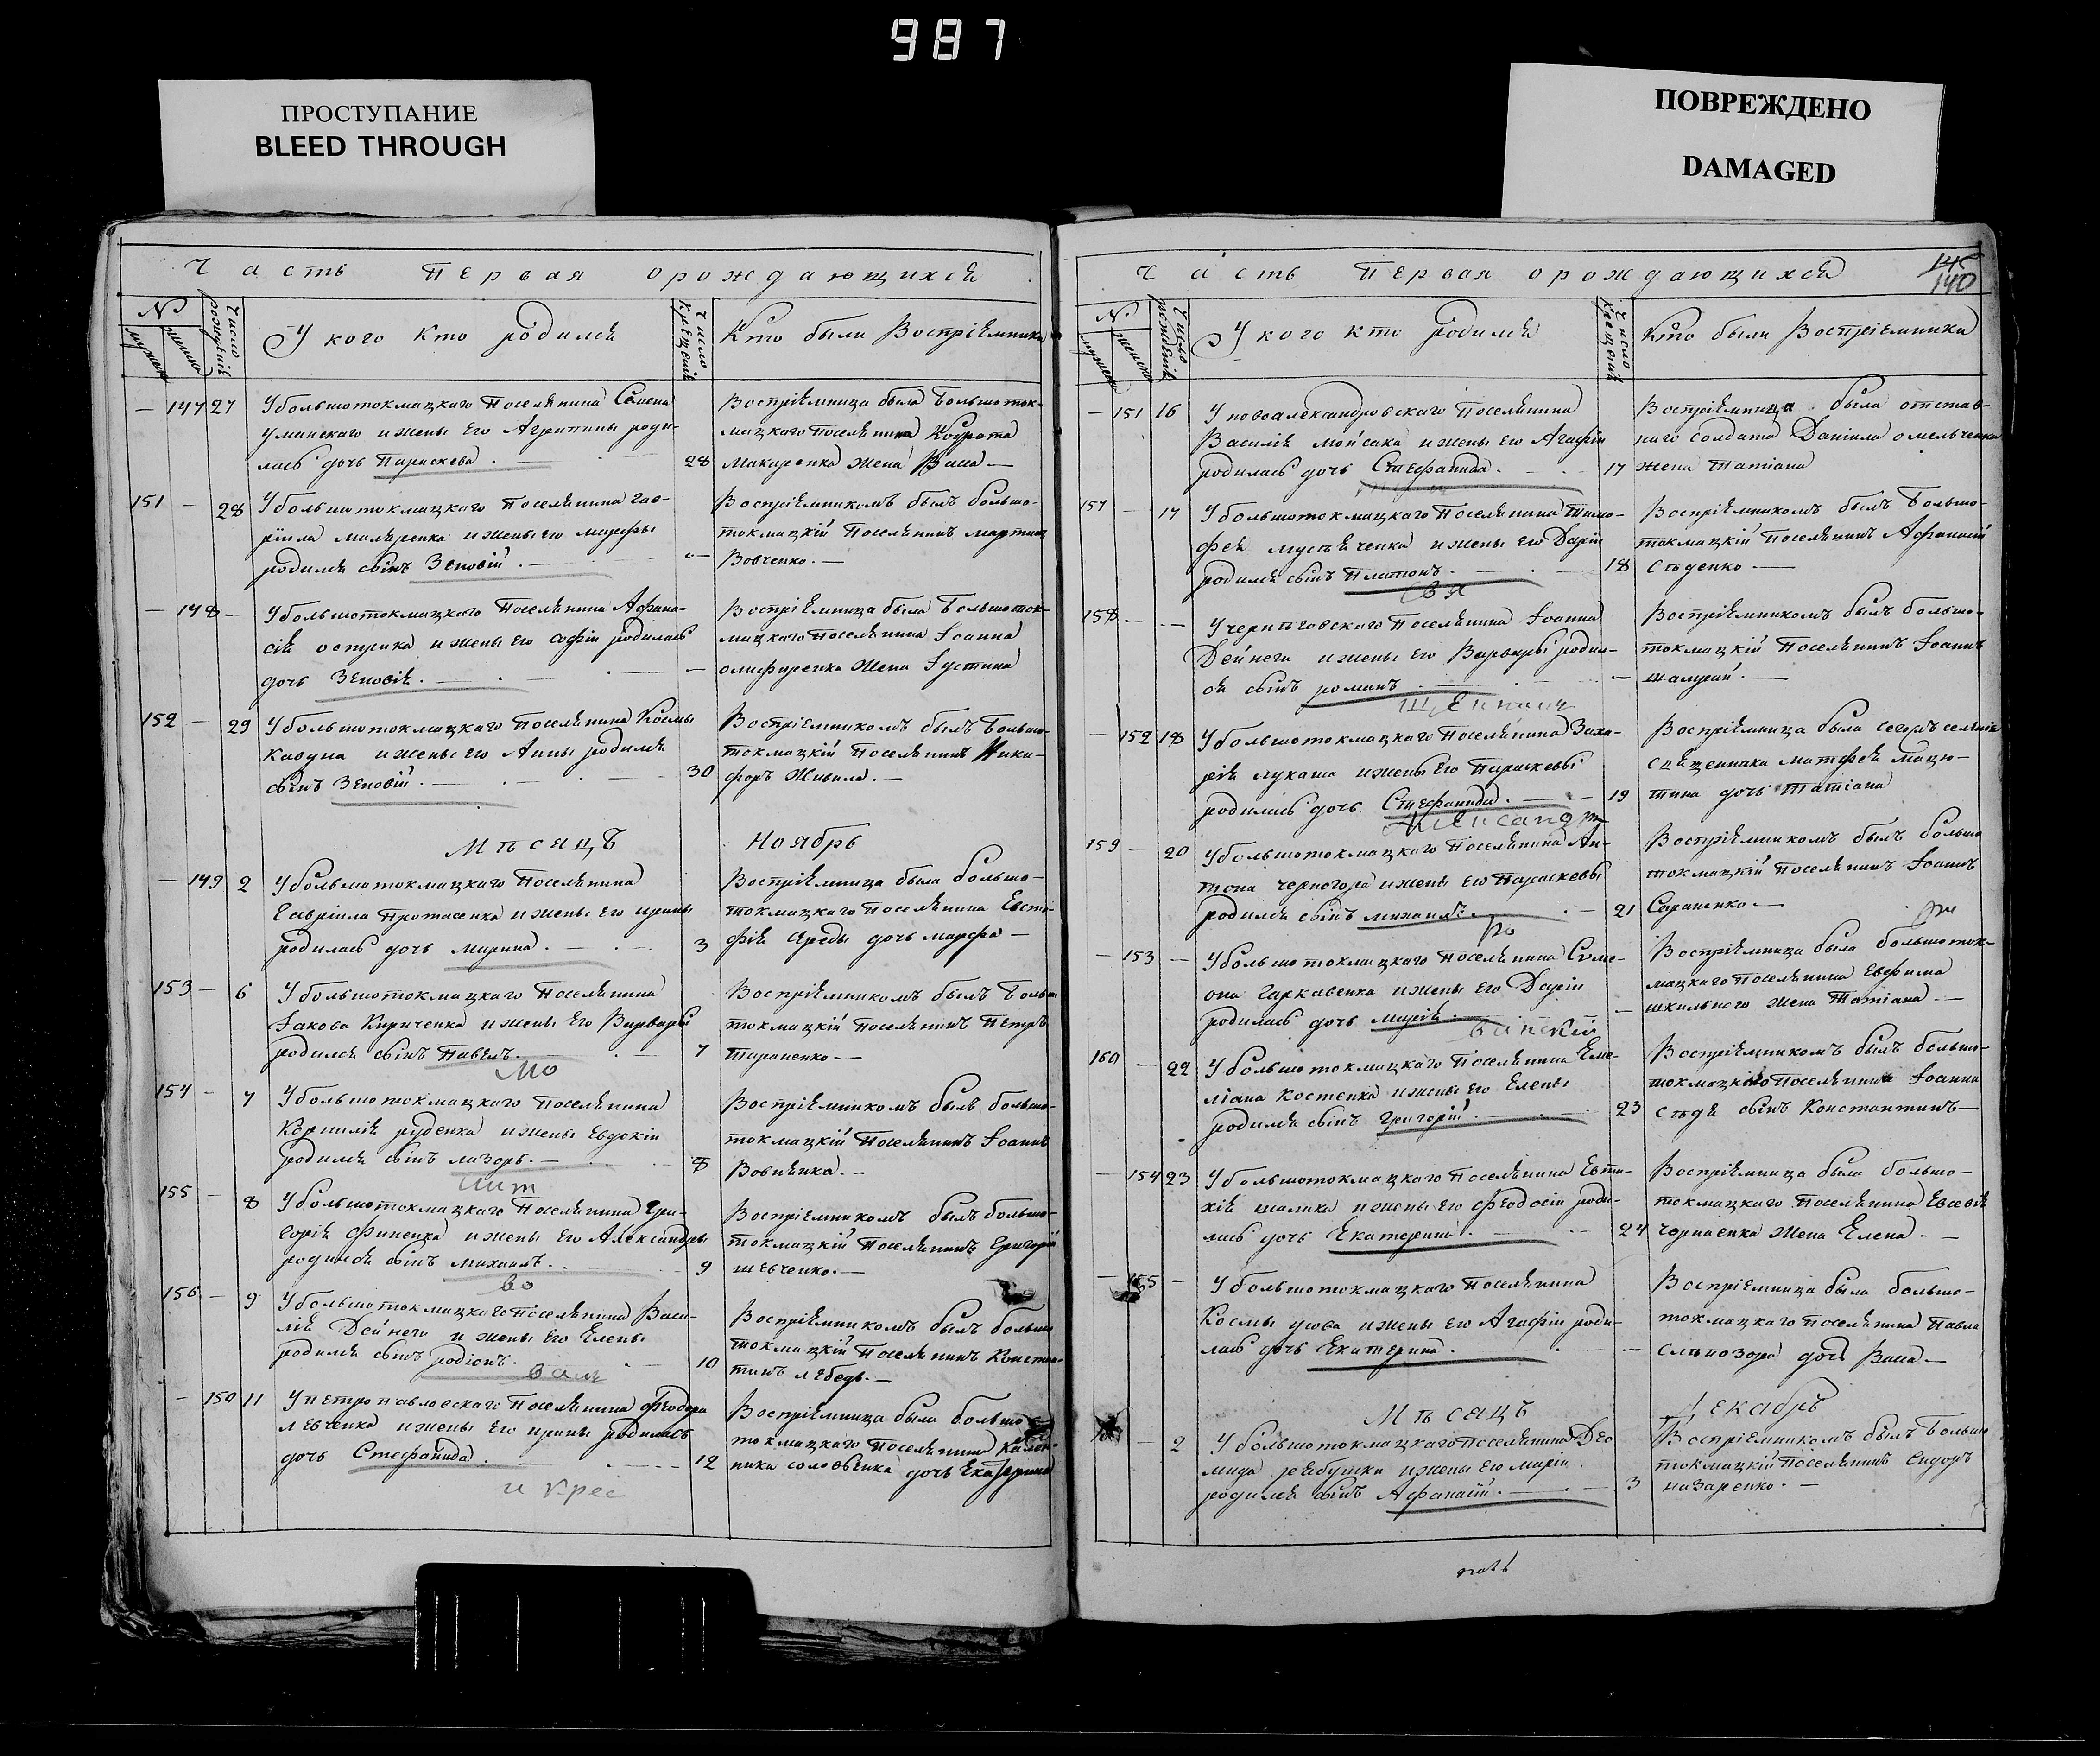 987
ПРОСТУПАНИЕ
BLEED THROUGH
ПОВРЕЖДЕНО
DAMAGED
Часть Первая о рождающихся
№
Число рождения
У кого кто родился
Число крещения
Кто были Воспріемники
— 147 27 У большотокмацкаго Поселянина Семена
Уманскаго и жены Его Агрипины роди-
лась дочь Параскева. 28
Воспріемница была Большоток-
мацкаго поселянина Кодрата
Макаренка жена Васса —
151 — 28 У большотокмацкаго Поселянина Гав-
ріила маляренка и жены его марфы
родился сынъ Зеновій. —
Воспріемникомъ былъ большо-
токмацкій Поселянинъ мартинъ
Вовченко. —
— 148 — У большотокмацкаго Поселянина Афана-
сія остуска и жены его софіи родилась
дочь Зеновія. —
Воспріемница была Большоток-
мацкаго Поселянина Іоанна
олифиренка жена Іустина
152 — 29 У большотокмацкаго Поселянина Космы
Кавуна и жены Его Анны родился
сынъ Зеновій. 30
Воспріемникомъ былъ Большо-
токмацкій Поселянинъ Ники-
форъ Живила. —
Мѣсяцъ Ноябрь
— 149 2 У большотокмацкаго Поселянина
Гавріила Протасенка и жены Его ирины
родилась дочь марина. 3
Воспріемница была большо-
токмацкаго поселянина Евста-
фія Середы дочь марфа —
153 — 6 У большотокмацкаго Поселянина
Іакова Кириченка и жены Его Варвары
родился сынъ Павелъ. 7
Воспріемникомъ былъ больш
токмацкій поселянинъ Петръ
тараненко. —
мо
154 — 7 У большотокмацкаго поселянина
Корнилія руденка и жены Евдокіи
родился сынъ лазорь. 8
Воспріемникомъ былъ большо-
токмацкій Поселянинъ Іоаннъ
Вовнянка. —
155 — 8 У большотокмацкаго Поселянина Гри-
горія Финенка и жены Его Александры
родился сынъ михаилъ. 9
Воспріемникомъ былъ большо-
токмацкій Поселянинъ Григорій
шевченко. —
во
156 — 9 У большотокмацкаго поселянина Васи-
лія Дейнего и жены Его Елены
родился сынъ родіонъ. 10
Воспріемникомъ былъ больш
токмацкій Поселянинъ Конста-
тинъ лебедь. —
— 150 11 У петропавловскаго Поселянина Феодора
левченка и жены Его ирины родилась
дочь Стефанида. 12
Воспріемница была большо
токмацкаго Поселянина
ника соловьенка дочь Екатерина
и крес
Часть Первая о рождающихся
140
№
Число рожденія
У кого кто родился
Число крещенія
Кто были Воспріемники
— 151 16 У новоалександровскаго поселянина
Василія мойсака и жены Его Агафіи
родилась дочь Стефанида. 17
Воспріемница была отстав-
наго солдата Даніила омельченка
жена татіана
157 — 17 У большотокмацкаго Поселянина Тимо-
фея мустяченка и жены Его Даріи
родился сынъ Платонъ. 18
Воспріемникомъ былъ Большо-
токмацкій поселянинъ Афанасій
Стценко —
158 — — У черниговского Поселянина Іоанна
Дейнега и жены Его Варвары родил-
ся сынъ романъ —
Воспріемникомъ былъ большо-
токмацкій Поселянинъ Іоаннъ
шамрай. —
— 152 18 У большотокмацкаго Поселянина Заха-
рія лукаша и жены Его Параскевы
родилась дочь Стефанида. 19
Воспріемница была сегожъ селенія
священника матфея мацю-
тина дочь татіана
159 — 20 У большотокмацкаго Поселянина Ан-
тона черногора и жены Его Параскевы
родился сынъ михаилъ. 21
Воспріемникомъ былъ больш
токмацкій Поселянинъ Іоаннъ
Сараненко —
— 153 — У большотокмацкаго Поселянина Симе-
она Гаркавенка и жены Его Даріи
родилась дочь марія —
Воспріемница была большоток-
мацкаго Поселянина Евфима
школьного жена татіана. —
160 — 22 У большотокмацкаго Поселянина Еме-
ліана Костенка и жены Его Елены
родился сынъ Григорій. 23
Воспріемникомъ былъ большо-
токмацкаго поселянина Іоанна
сынъ Константинъ —
— 154 23 У большотокмацкаго Поселянина Евти-
хія шалика и жены Его Феодосіи роди-
лась дочь Екатерина. 24
Воспріемница была большо-
токмацкаго Поселянина Евсевія
Чорнаенка жена Елена —
— 155 — У большотокмацкаго Поселянина
Космы усова и жены Его Агафіи роди-
лась дочь Екатерина. —
Воспріемница была большо-
токмацкаго поселянина Павла
слѣпозора дочь Васса —
Мѣсяцъ Декабрь
— 2 У большотокмацкаго поселянина Део
мида рябушки и жены Его маріи
родился сынъ Афанасій. 3
Воспріемникомъ былъ Больш
токмацкій поселянинъ Сидоръ
назаренко. —